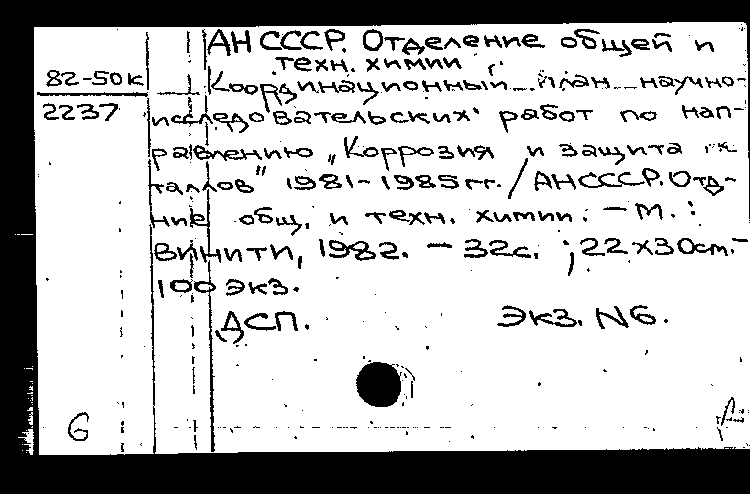 АН СССР. Отделение общей и
техн. химии
82-50к
Координационный план научно-
2237
исследовательских работ по нап-
равлению „Коррозия и защита ме-
таллов" 1981-1985гг. / АН СССР. Отд-
ние общ. и техн. химии. - М.:
ВИНИТИ, 1982. - 32с. ; 22х30см. -
100 экз.
ДСП. Экз. N6.
6